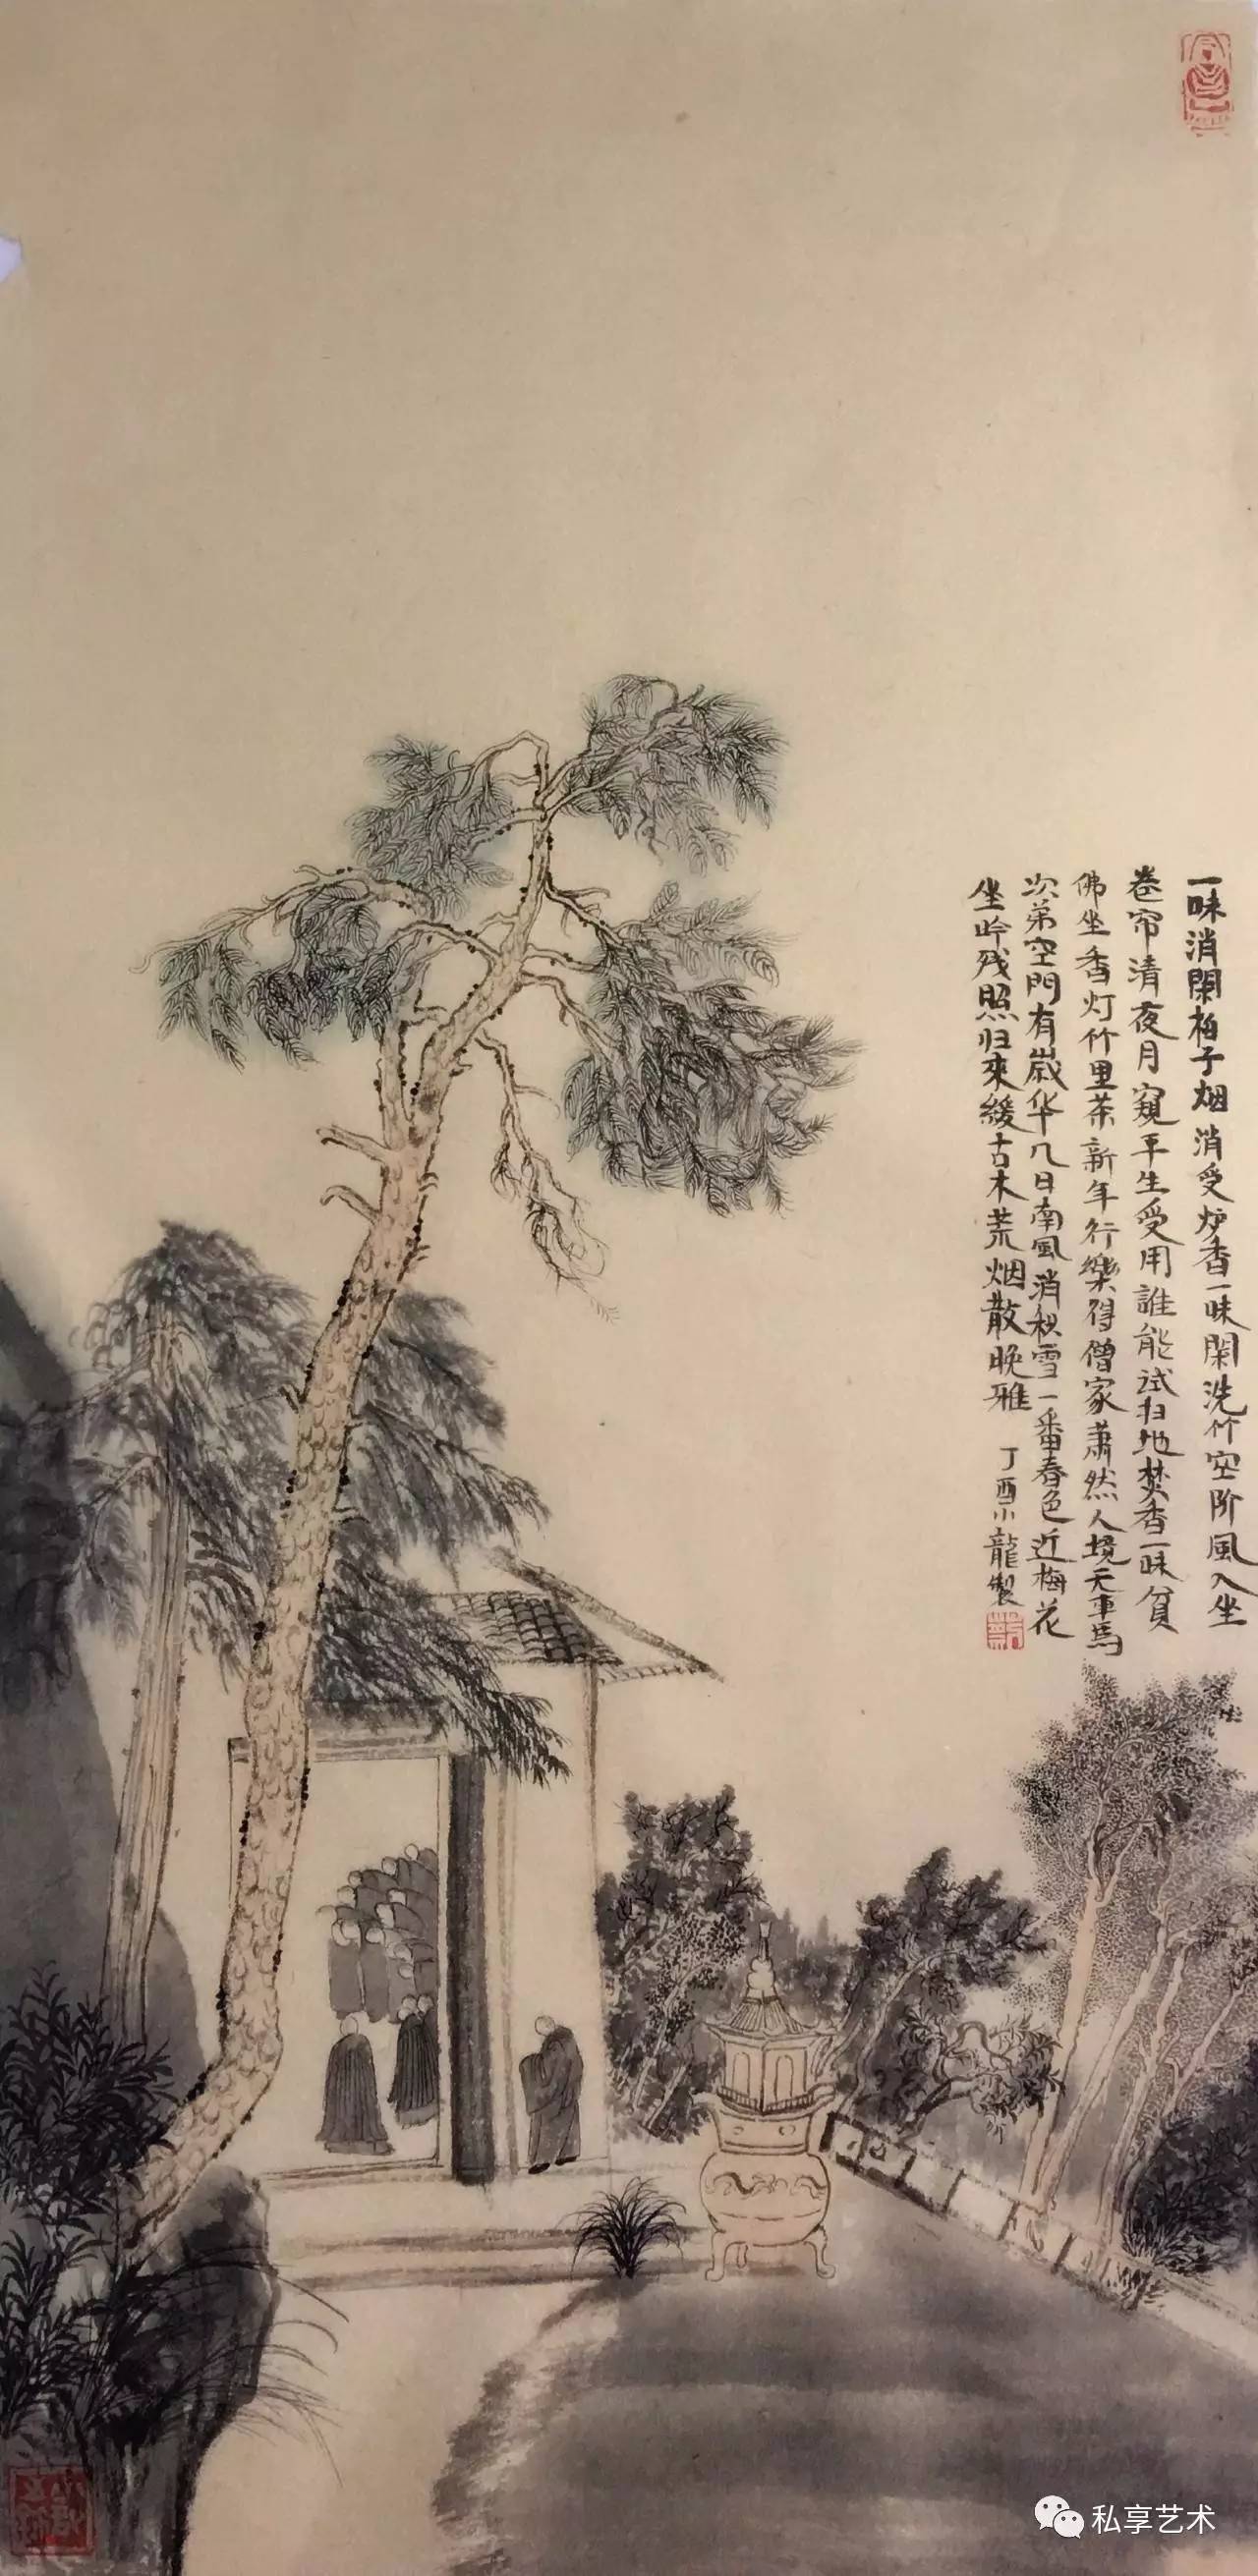 一味消閑柏子烟消受炉香一味閑洗竹空阶風入坐
卷帘清夜月窺平生受用誰能试扫地焚香一味貧
佛坐香灯竹里茶新年行樂得僧家蕭然人境无車馬
次第空門有歲华几日南風消积雪一番春色近梅花
坐吟残照归來緩古木荒烟散晚雅
丁酉小龍製
私享艺术